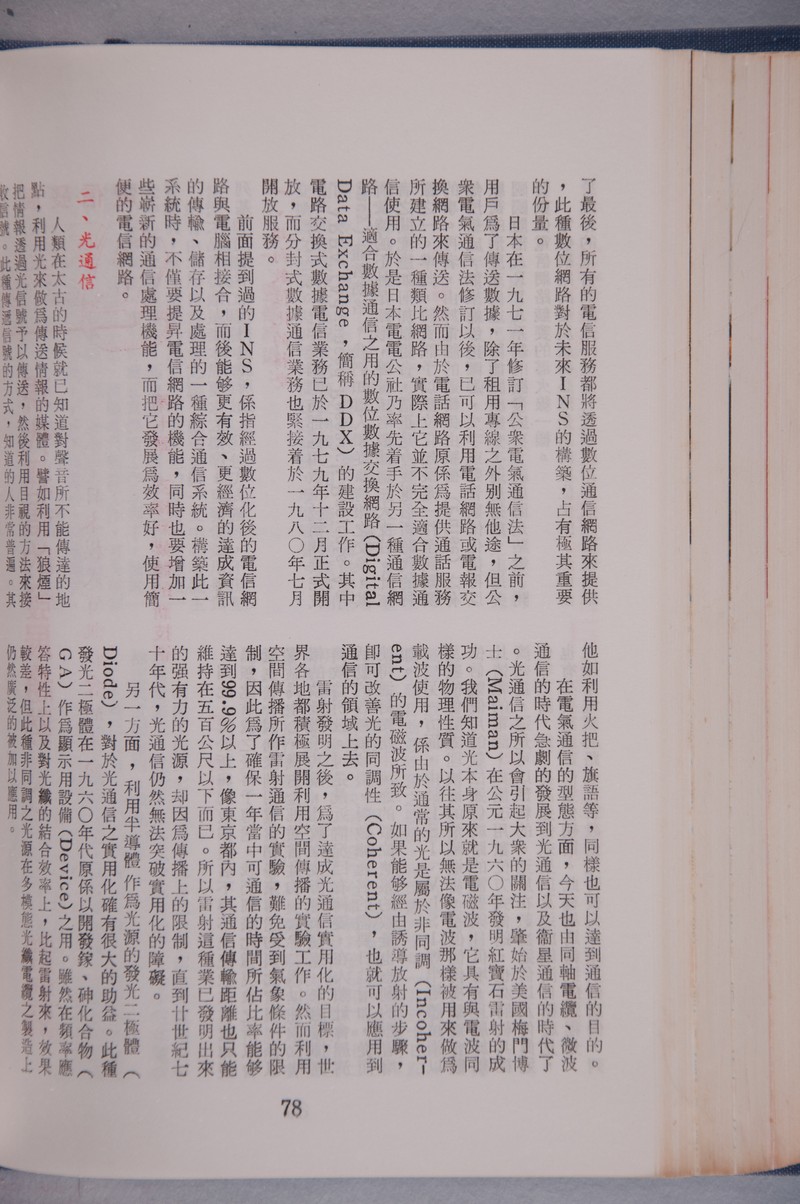 了最後，所有的電信服務都將透過數位通信網路來提供
，此種數位網路對於未來ＩＮＳ的構築，占有極其重要
的份量。
日本在一九七一年修訂「公衆電氣通信法」之前，
用戶爲了傳送數據，除了租用專線之外別無他途，但公
衆電氣通信法修訂以後，已可以利用電話網路或電報交
換網路來傳送。然而由於電話網路原係爲提供通話服務
所建立的一種類比網路，實際上它並不完全適合數據通
信使用。於是日本電電公社乃率先着手於另一種通信網
路——適合數據通信之用的數位數據交換網路（Digital
Data Exchange，簡稱ＤＤＸ）的建設工作。其中
電路交換式數據電信業務已於一九七九年十二月正式開
放，而分封式數據通信業務也緊接着於一九八〇年七月
開放服務。
前面提到過的ＩＮＳ，係指經過數位化後的電信網
路與電腦相接合，而後能够更有效、更經濟的達成資訊
的傳輸、儲存以及處理的一種綜合通信系統。構築此一
系統時，不僅要提昇電信網路的機能，同時也要增加一
些嶄新的通信處理機能，而把它發展爲效率好，使用簡
便的電信網路。
二、光通信
人類在太古的時候就已知道對聲音所不能傳達的地
點，利用光來做爲傳送情報的媒體。譬如利用「狼煙」
把情報透過光信號予以傳送，然後利用目視的方法來接
收信號。此種傳遞信號的方式，知道的人非常普遍。其
他如利用火把、旗語等，同樣也可以達到通信的目的。
在電氣通信的型態方面，今天也由同軸電纜、微波
通信的時代急劇的發展到光通信以及衞星通信的時代了
。光通信之所以會引起大衆的關注，肇始於美國梅門博
士（Maiman）在公元一九六〇年發明紅寶石雷射的成
功。我們知道光本身原來就是電磁波，它具有與電波同
樣的物理性質。以往其所以無法像電波那樣被用來做爲
載波使用，係由於通常的光是屬於非同調（Incoher-
ent）的電磁波所致。如果能够經由誘導放射的步驟，
卽可改善光的同調性（Coherent），也就可以應用到
通信的領域上去。
雷射發明之後，爲了達成光通信實用化的目標，世
界各地都積極展開利用空間傳播的實驗工作。然而利用
空間傳播所作雷射通信的實驗，難免受到氣象條件的限
制，因此爲了確保一年當中可通信的時間所佔比率能够
達到99.9％以上，像東京都內，其通信傳輸距離也只能
維持在五百公尺以下而已。所以雷射這種業已發明出來
的强有力的光源，却因爲傳播上的限制，直到廿世紀七
十年代，光通信仍然無法突破實用化的障礙。
另一方面，利用半導體作爲光源的發光二極體（
Diode），對於光通信之實用化確有很大的助益。此種
發光二極體在一九六〇年代原係以開發鎵、砷化合物（
ＧＡ）作爲顯示用設備（Device）之用。雖然在頻率應
答特性上以及對光纖的結合效率上，比起雷射來，效果
較差，但此種非同調之光源在多模態光纖電纜之製造上
仍然廣泛的被加以應用。
78